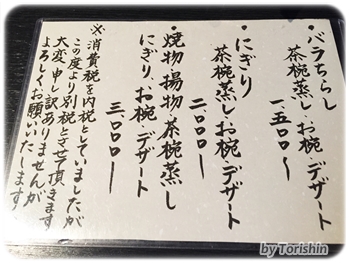 ・バラちらし
茶椀蒸し.お椀.デザート
一、五〇〇〜
・にぎり
茶椀蒸し.お椀.デザート
二、〇〇〇ー
・焼物.揚物.茶椀蒸し
にぎり.お椀.デザート
三、〇〇〇ー
※消費税を内税としていましたが
この度より別税とさせて頂きます
大変申し訳ありませんが
よろしくお願いいたします
by Torishin